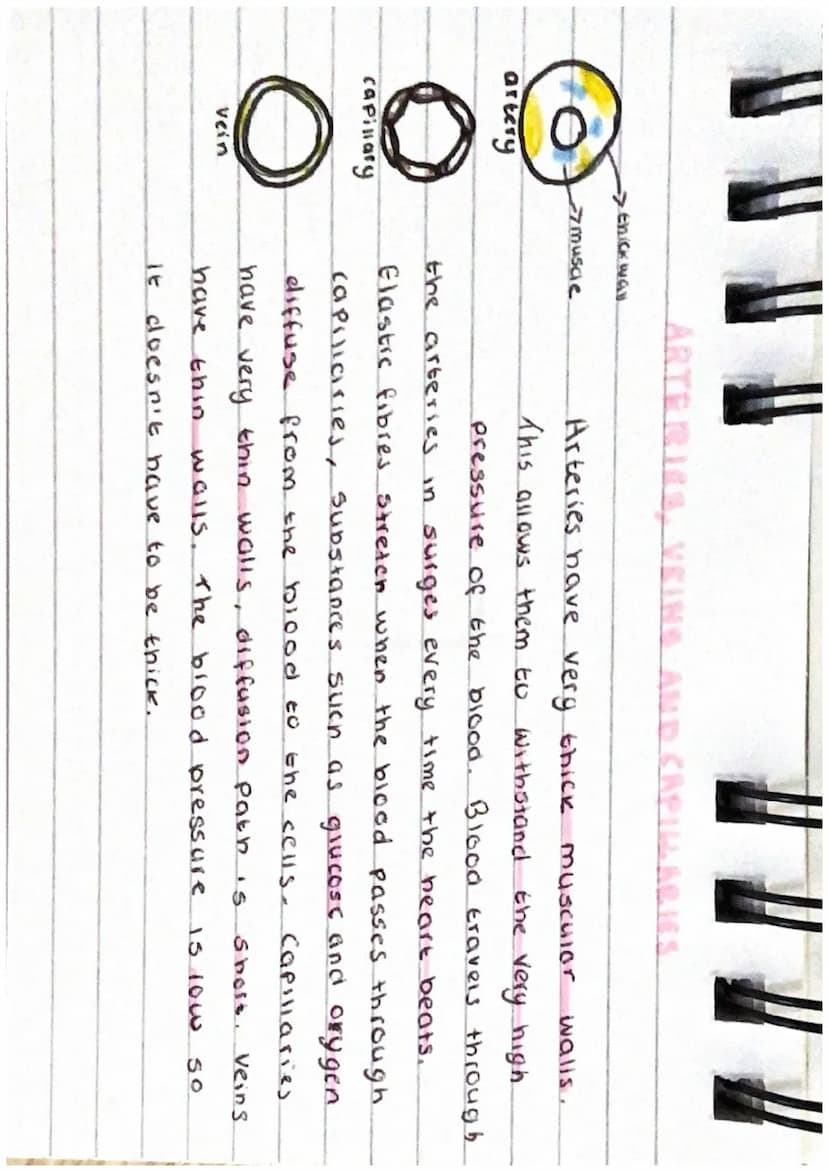 ARTERIES, VEINS AND CAPILLARIES
thick wall
muscle
artery
Arteries have very thick muscular walls.
This allows them to withstand the very high
pressure of the blood. Blood travels through
the arteries in surges every time the heart beats.
capillary
Elastic fibres stretch when the blood passes through
capillaries, substances such as glucose and oxygen
diffuse from the blood to the cells. Capillaries
vein
have very thin walls, diffusion path is short. Veins
have thin walls. The blood pressure is low so
it doesn't have to be thick.